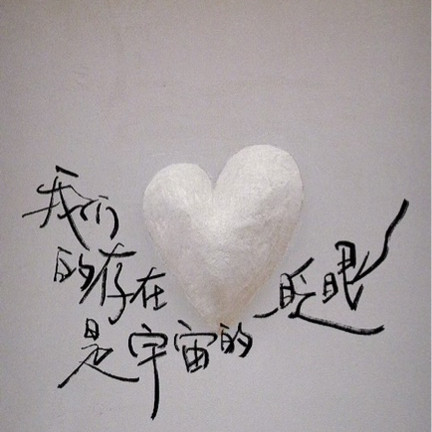 我们
的存在
是宇宙的
眨眼